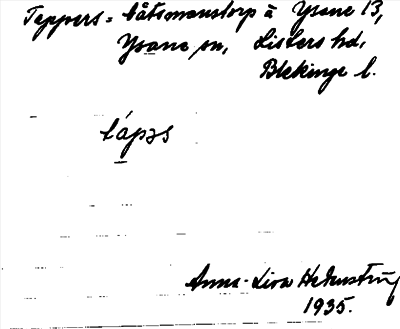 Teppers = båtsmanstorp à Ysane 13,
Ysane sn, Listers hd,
Blekinge l.
tápəs
Anna-Lisa
1935.